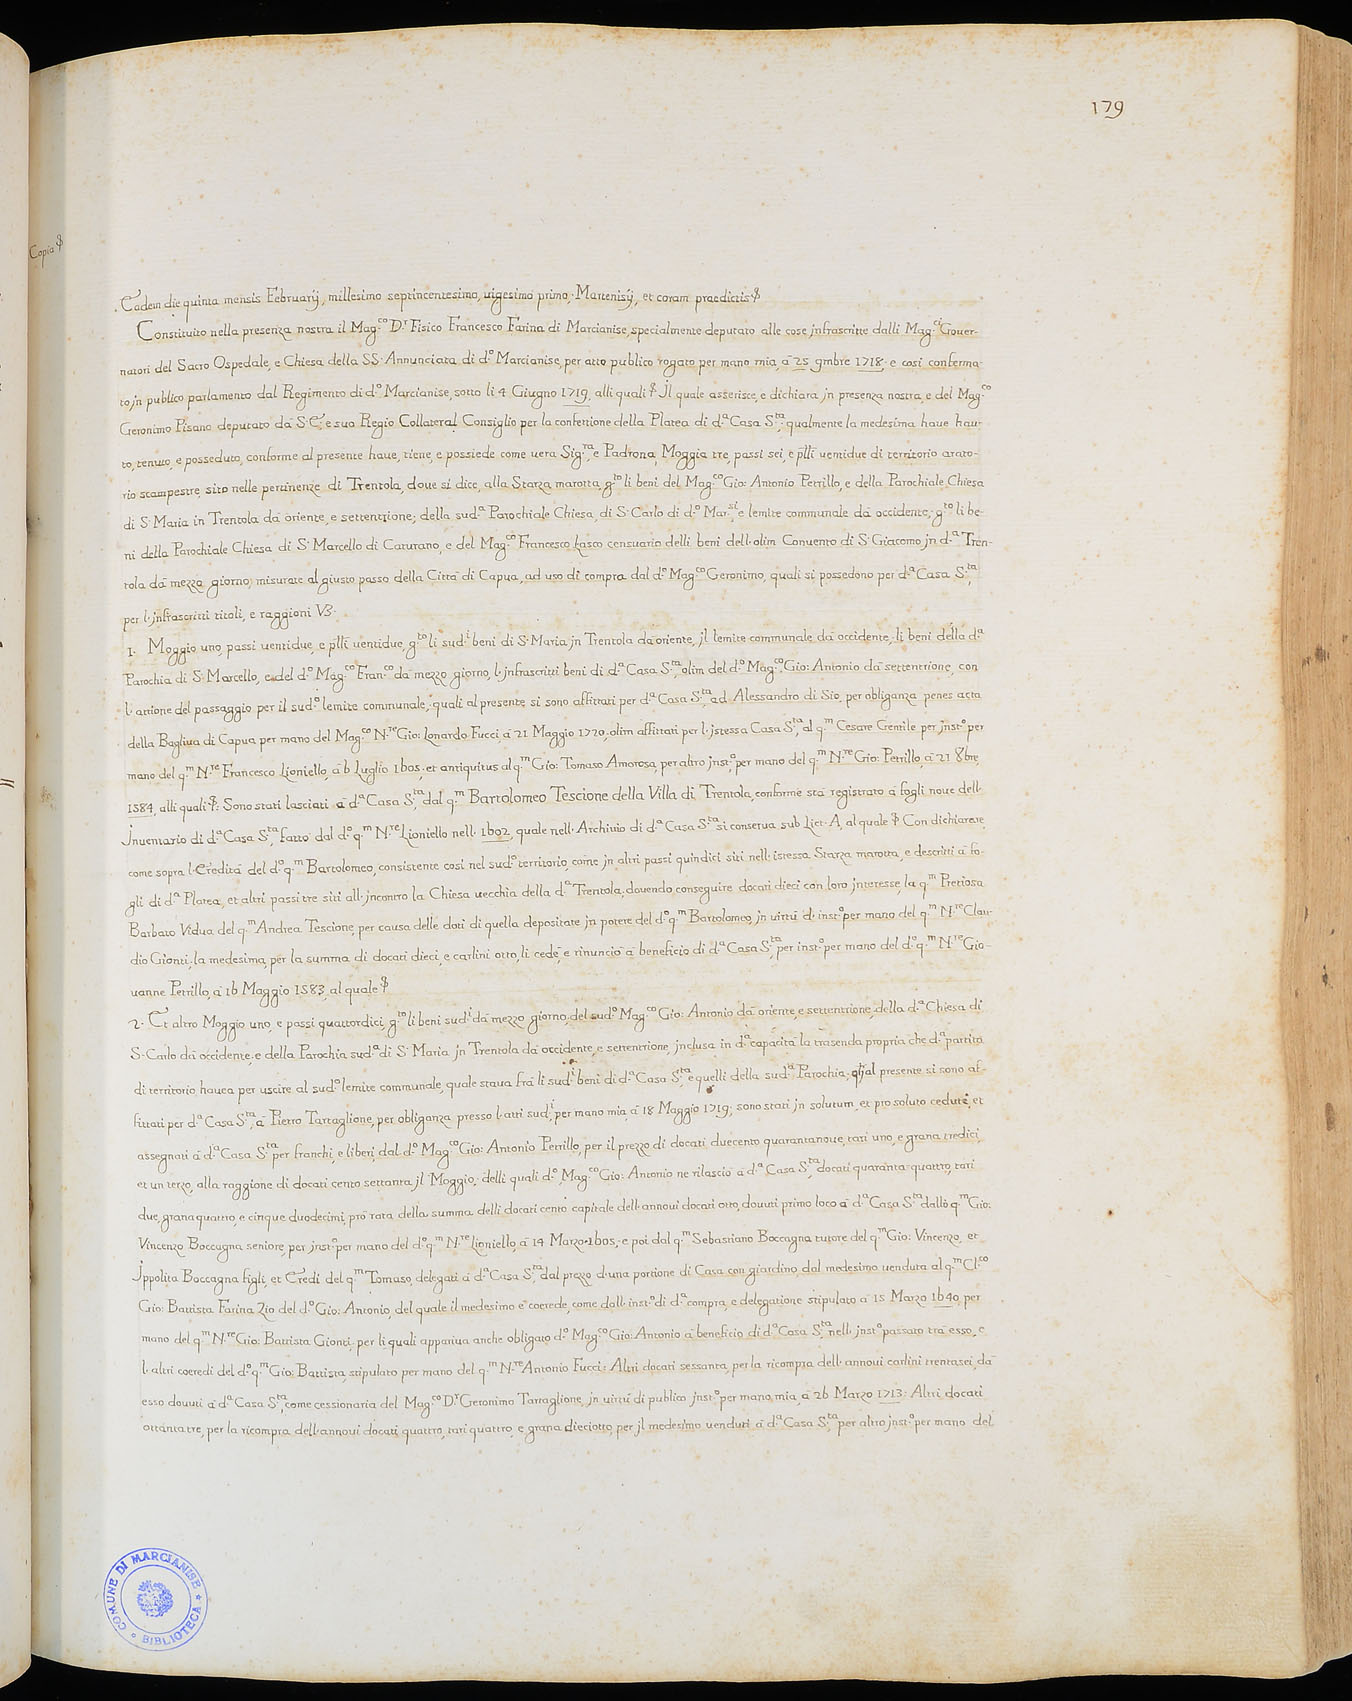 179
Copia
Eadem die quinta mensis Februarij, millesimo septincentesimo, uigesimo primo, Martenisij, et coram praedictis
Constituito nella presenza nostra il Mag.co D.r Fisico Francesco Farina di Marcianise, specialmente deputato alle cose jnfrascritte dalli Mag.ci Gouer-
natori del Sacro Ospedale, e Chiesa della SS. Annunciata di d.o Marcianise, per atto publico rogato per mano mia, à 25 9mbre 1718. e così conferma-
to jn publico parlamento dal Regimento di d.o Marcianise, sotto li 4 Giugno 1719, alli quali Jl quale asserisce, e dichiara jn presenza nostra, e del Mag.co
Geronimo Pisano deputato da S. E., e suo Regio Collateral Consiglio per la confettione della Platea di d.a Casa S.ta, qualmente la medesima haue hau-
to, tenuto, e posseduto, conforme al presente haue, tiene, e possiede come uera Sig.ra, e Padrona, Moggia tre, passi sei, e p̃lli uentidue di territorio arato-
rio scampestre, sito nelle pertinenze di Trentola, doue si dice, alla Starza marotta, g.to li beni del Mag.co Gio: Antonio Petrillo, e della Parochiale Chiesa
di S. Maria in Trentola da oriente, e settentrione; della sud.a Parochiale Chiesa, di S. Carlo di d.o Mar.si e lemite communale da occidente, g.to li be-
ni della Parochiale Chiesa di S. Marcello di Caturano, e del Mag.co Francesco Lasco censuario delli beni dell'olim Conuento di S. Giacomo jn d.a Tren-
tola da mezzo giorno; misurate al giusto passo della Città di Capua, ad uso di compra dal d.o Mag.co Geronimo, quali si possedono per d.a Casa S.ta,
per l'jnfrascritti titoli, e raggioni V3.
1. Moggio uno, passi uentidue, e p̃lli uentidue, g.to li sud.i beni di S. Maria jn Trentola da oriente, jl lemite communale da occidente, li beni della d.a
Parochia di S. Marcello, e del d.o Mag.co Fran.co da mezzo giorno, l'jnfrascritti beni di d.a Casa S.ta, olim del d.o Mag.co Gio: Antonio da settentrione, con
l'attione del passaggio per il sud.o lemite communale, quali al presente si sono affittati per d.a Casa S.ta ad Alessandro di Sio, per obliganza penes acta
della Bagliua di Capua per mano del Mag.co N.re Gio: Lonardo Fucci, à 21 Maggio 1720, olim affittati per l'jstessa Casa S.ta, al q.m Cesare Gentile per jnst.o per
mano del q.m N.re Francesco Lioniello, à 6 Luglio 1605. et antiquitus al q.m Gio: Tomaso Amorosa, per altro jnst.o per mano del q.m N.re Gio: Petrillo, à 21 8bre
1584, alli quali: Sono stati lasciati à d.a Casa S.ta dal q.m Bartolomeo Tescione della Villa di Trentola, conforme stà registrato à fogli noue dell'
Jnuentario di d.a Casa S.ta, fatto dal d.o q.m N.re Lioniello nell' 1602, quale nell'Archiuio di d.a Casa S.ta si conserua sub Lict. A, al quale Con dichiarare,
come sopra l'Eredità del d.o q.m Bartolomeo, consistente così nel sud.o territorio, come jn altri passi quindici siti nell'istessa Starza marotta, e descritti à fo-
gli di d.a Platea, et altri passi tre siti all'jncontro la Chiesa uecchia della d.a Trentola, douendo conseguire docati dieci con loro jnteresse, la q.m Pretiosa
Barbato Vidua del q.m Andrea Tescione, per causa delle doti di quella depositate jn potere del d.o q.m Bartolomeo, jn uirtù di inst.o per mano del q.m N.re Clau-
dio Gionti, la medesima, per la summa di docati dieci, e carlini otto, li cedè, e rinunciò à beneficio di d.a Casa S.ta per inst.o per mano del d.o q.m N.re Gio-
uanne Petrillo, à 16 Maggio 1583, al quale
2. Et altro Moggio uno, e passi quattordici, g.to li beni sud.i da mezzo giorno, del sud.o Mag.co Gio: Antonio da oriente, e settentrione, della d.a Chiesa di
S. Carlo da occidente, e della Parochia sud.a di S. Maria jn Trentola da occidente, e settentrione, jnclusa in d.a capacità la trasenda propria che d.a partita
di territorio hauea per uscire al sud.o lemite communale, quale staua frà li sud.i beni di d.a Casa S.ta, e quelli della sud.a Parochia; q̃li al presente si sono af-
fittati per d.a Casa S.ta, à Pietro Tartaglione, per obliganza presso l'atti sud.i, per mano mia à 18 Maggio 1719; sono stati jn solutum, et pro soluto ceduti, et
assegnati à d.a Casa S.ta per franchi, e liberi, dal d.o Mag.co Gio: Antonio Petrillo, per il prezzo di docati duecento quarantanoue, tari uno, e grana tredici,
et un terzo, alla raggione di docati cento settanta jl Moggio, delli quali d.o Mag.co Gio: Antonio ne rilasciò à d.a Casa S.ta docati quaranta quattro, tari
due, grana quattro, e cinque duodecimi, prò rata della summa delli docati cento capitale dell'annoui docati otto, douuti primo loco à d.a Casa S.ta dallo q.m Gio:
Vincenzo Boccagna seniore, per jnst.o per mano del d.o q.m N.re Lioniello, à 14 Marzo 1605, e poi dal q.m Sebastiano Boccagna tutore del q.m Gio: Vincenzo, et
Jppolita Boccagna figli, et Eredi del q.m Tomaso, delegati à d.a Casa S.ta dal prezzo d'una portione di Casa con giardino, dal medesimo uenduta al q.m Cl.co
Gio: Battista Farina Zio del d.o Gio: Antonio, del quale il medesimo è coerede, come dall'inst.o di d.a compra, e delegatione stipulato à 15 Marzo 1640, per
mano del q.m N.re Gio: Battista Gionti, per li quali appariua anche obligato d.o Mag.co Gio: Antonio à beneficio di d.a Casa S.ta nell'jnst.o passato trà esso, e
l'altri coeredi del d.o q.m Gio: Battista, stipulato per mano del q.m N.re Antonio Fucci: Altri docati sessanta, per la ricompra dell'annoui carlini trentasei, da
esso douuti à d.a Casa S.ta, come cessionaria del Mag.co D.r Geronimo Tartaglione, jn uirtù di publico jnst.o per mano mia, à 26 Marzo 1713: Altri docati
ottantatre, per la ricompra dell'annoui docati quattro, tari quattro, e grana dieciotto, per jl medesimo uenduti à d.a Casa S.ta per altro jnst.o per mano del
COMUNE DI MARCIANISE
BIBLIOTECA